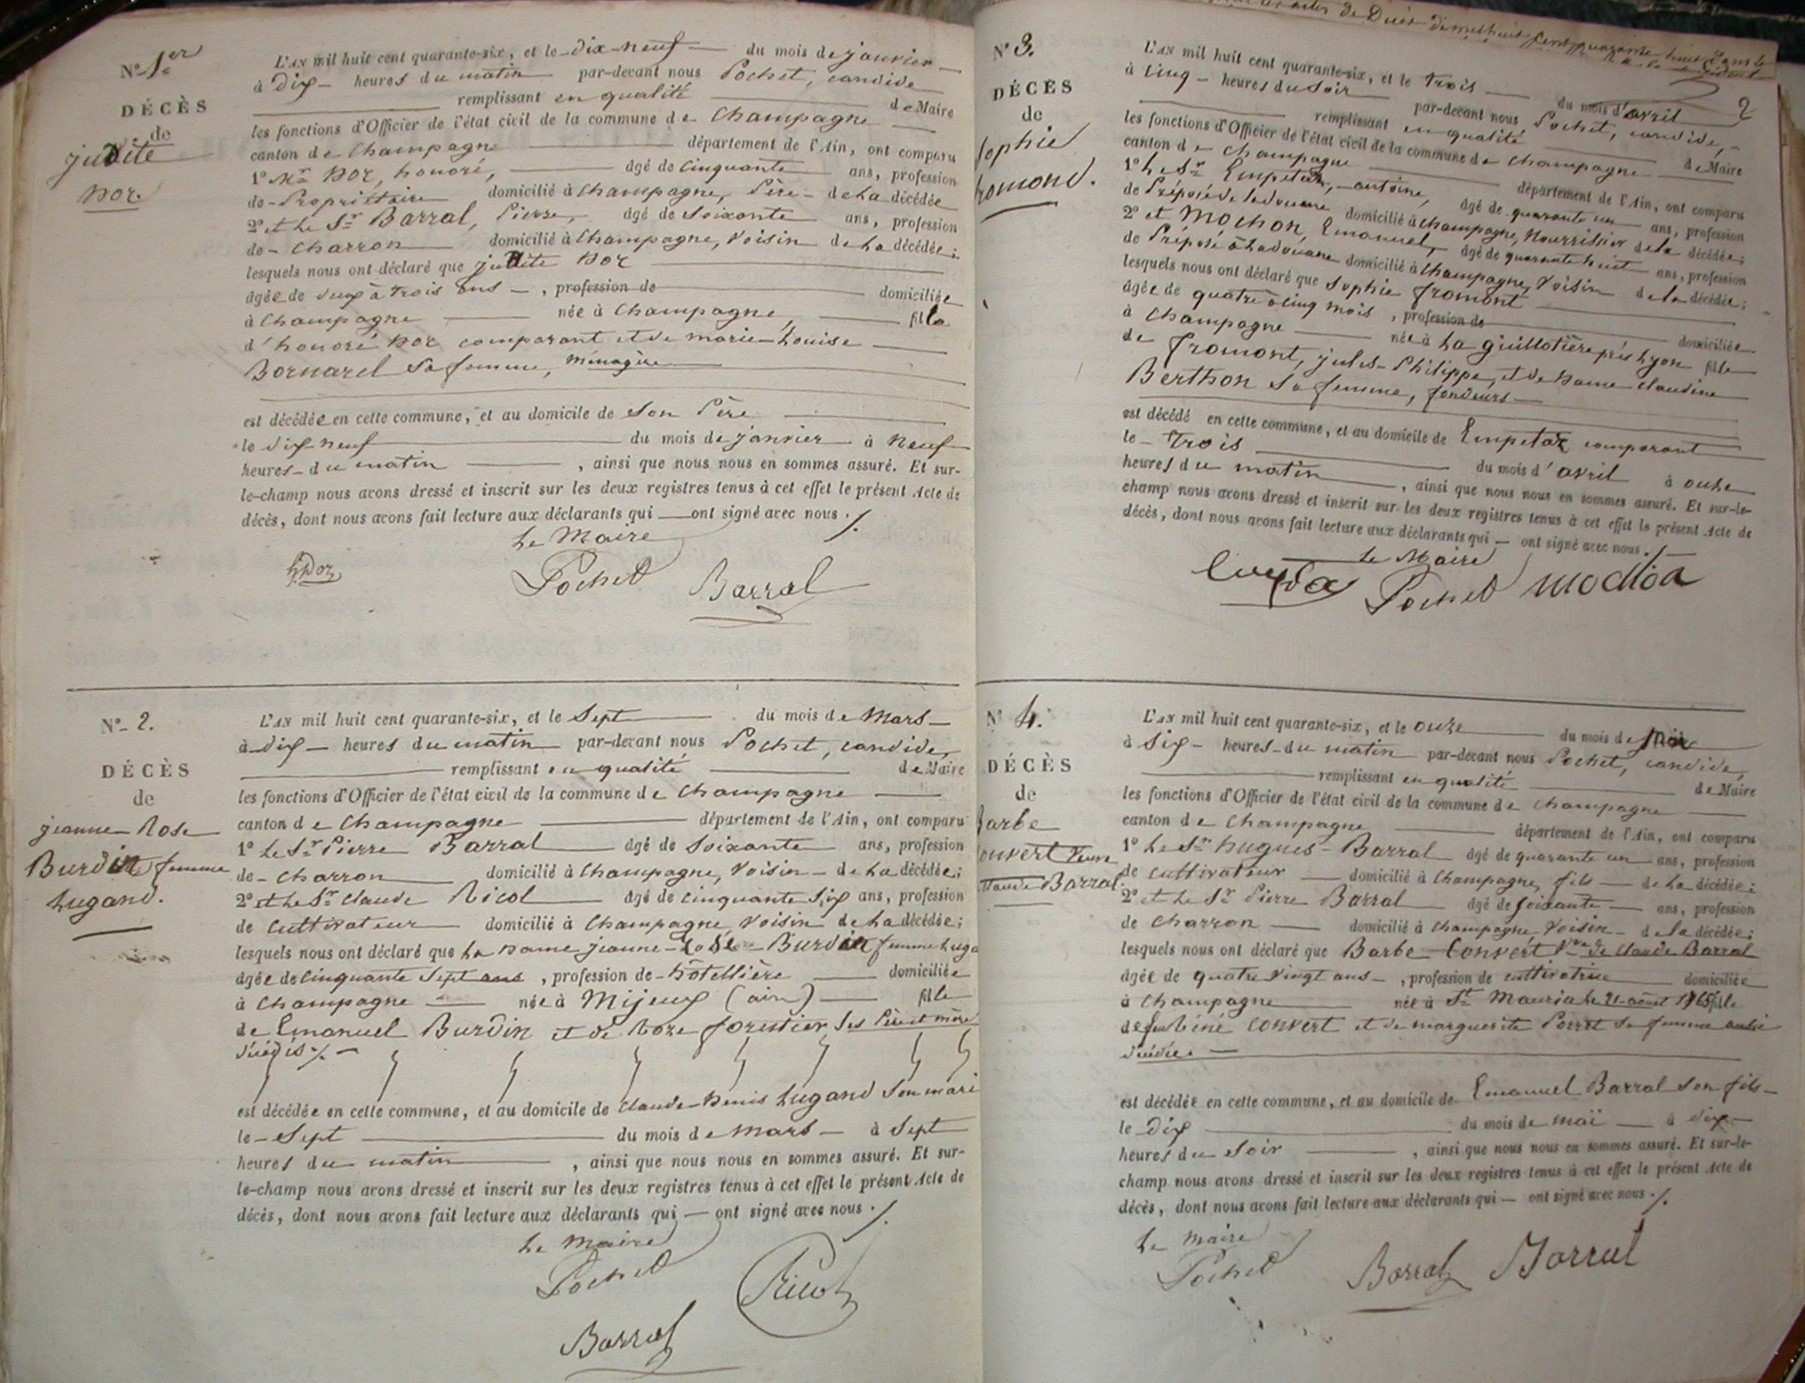 N° 1.er
DÉCÈS
de
judite
Dor.
L'AN mil huit cent quarante-six, et le dix-neuf du mois de janvier
à dix heures du matin par-devant nous Pochet, candide
remplissant en qualité de Maire
les fonctions d'Officier de l'état civil de la commune de Champagne
canton de Champagne département de l'Ain, ont comparu
1° Mr Dor, honoré, âgé de cinquante ans, profession
de Propriétaire domicilié à Champagne, Père de la décédée
2° et le Sr Barral, Pierre, âgé de soixante ans, profession
de charron domicilié à Champagne, voisin de la décédée;
lesquels nous ont déclaré que judite Dor
âgée de deux à trois ans, profession de domiciliée
à Champagne née à Champagne, fille
d'honoré Dor comparant et de marie-Louise
Bornarel sa femme, ménagère
est décédée en cette commune, et au domicile de son Père
le dix neuf du mois de janvier à neuf
heures du matin, ainsi que nous nous en sommes assuré. Et sur-
le-champ nous avons dressé et inscrit sur les deux registres tenus à cet effet le présent Acte de
décès, dont nous avons fait lecture aux déclarants qui ont signé avec nous ./.
Le Maire
hDor Pochet Barral
N° 2.
DÉCÈS
de
jeanne Rose
Burdin femme
Lugand.
L'AN mil huit cent quarante-six, et le sept du mois de Mars
à dix heures du matin par-devant nous Pochet, candide,
remplissant en qualité de Maire
les fonctions d'Officier de l'état civil de la commune de Champagne
canton de Champagne département de l'Ain, ont comparu
1° le Sr Pierre Barral âgé de soixante ans, profession
de charron domicilié à Champagne, voisin de la décédée;
2° et le Sr Claude Ricol âgé de cinquante six ans, profession
de cultivateur domicilié à Champagne voisin de la décédée;
lesquels nous ont déclaré que la Dame jeanne-Rose Burdin femme Luga
âgée de cinquante sept ans, profession de hôtellière domiciliée
à Champagne née à Mijoux (ain) fille
de Emanuel Burdin et de Roze forestier ses Père et mère
décédés ./.
est décédée en cette commune, et au domicile de Claude-Denis Lugand son mari
le sept du mois de mars à sept
heures du matin, ainsi que nous nous en sommes assuré. Et sur-
le-champ nous avons dressé et inscrit sur les deux registres tenus à cet effet le présent Acte de
décès, dont nous avons fait lecture aux déclarants qui ont signé avec nous ./.
Le Maire
Pochet Ricol
Barral
actes de Décès de mil huit cent quarante-huit dans le
2
N° 3.
DÉCÈS
de
Sophie
fromond.
L'AN mil huit cent quarante-six, et le trois du mois d'avril
à cinq heures du soir par-devant nous Pochet, candide,
remplissant en qualité de Maire
les fonctions d'Officier de l'état civil de la commune de Champagne
canton de Champagne département de l'Ain, ont comparu
1° le Sr Empetaz, antoine, âgé de quarante un ans, profession
de Préposé de douane domicilié à Champagne, Nourrissier de la décédée;
2° et Mochon Emanuel, âgé de quarante huit ans, profession
de Préposé à la douane domicilié à Champagne, voisin de la décédée;
lesquels nous ont déclaré que Sophie fromont
âgée de quatre à cinq mois, profession de domiciliée
à Champagne née à La guillotière près Lyon fille
de fromont, jules-Philippe, et de Dame Claudine
Berthon sa femme, fondeurs
est décédé en cette commune, et au domicile de Empetaz comparant
le trois du mois d'avril à onze
heures du matin, ainsi que nous nous en sommes assuré. Et sur-le-
champ nous avons dressé et inscrit sur les deux registres tenus à cet effet le présent Acte de
décès, dont nous avons fait lecture aux déclarants qui ont signé avec nous ./.
Le Maire
Pochet mochon
N° 4.
DÉCÈS
de
Barbe
Convert Veuve
Claude Barral.
L'AN mil huit cent quarante-six, et le onze du mois de mai
à six heures du matin par-devant nous Pochet, candide,
remplissant en qualité de Maire
les fonctions d'Officier de l'état civil de la commune de Champagne
canton de Champagne département de l'Ain, ont comparu
1° le Sr hugues Barral âgé de quarante un ans, profession
de cultivateur domicilié à Champagne, fils de la décédée;
2° et le Sr Pierre Barral âgé de soixante ans, profession
de charron domicilié à Champagne voisin de la décédée;
lesquels nous ont déclaré que Barbe Convert Vve de Claude Barral
âgée de quatre vingt ans, profession de cultivatrice domiciliée
à Champagne née à St Mauria le 21 août 1765 fille
de feu Réné Convert et de marguerite Perrot sa femme aussi
décédée.
est décédée en cette commune, et au domicile de Emanuel Barral son fils
le dix du mois de mai à dix
heures du soir, ainsi que nous nous en sommes assuré. Et sur-le-
champ nous avons dressé et inscrit sur les deux registres tenus à cet effet le présent Acte de
décès, dont nous avons fait lecture aux déclarants qui ont signé avec nous ./.
Le Maire
Pochet Barral Barral